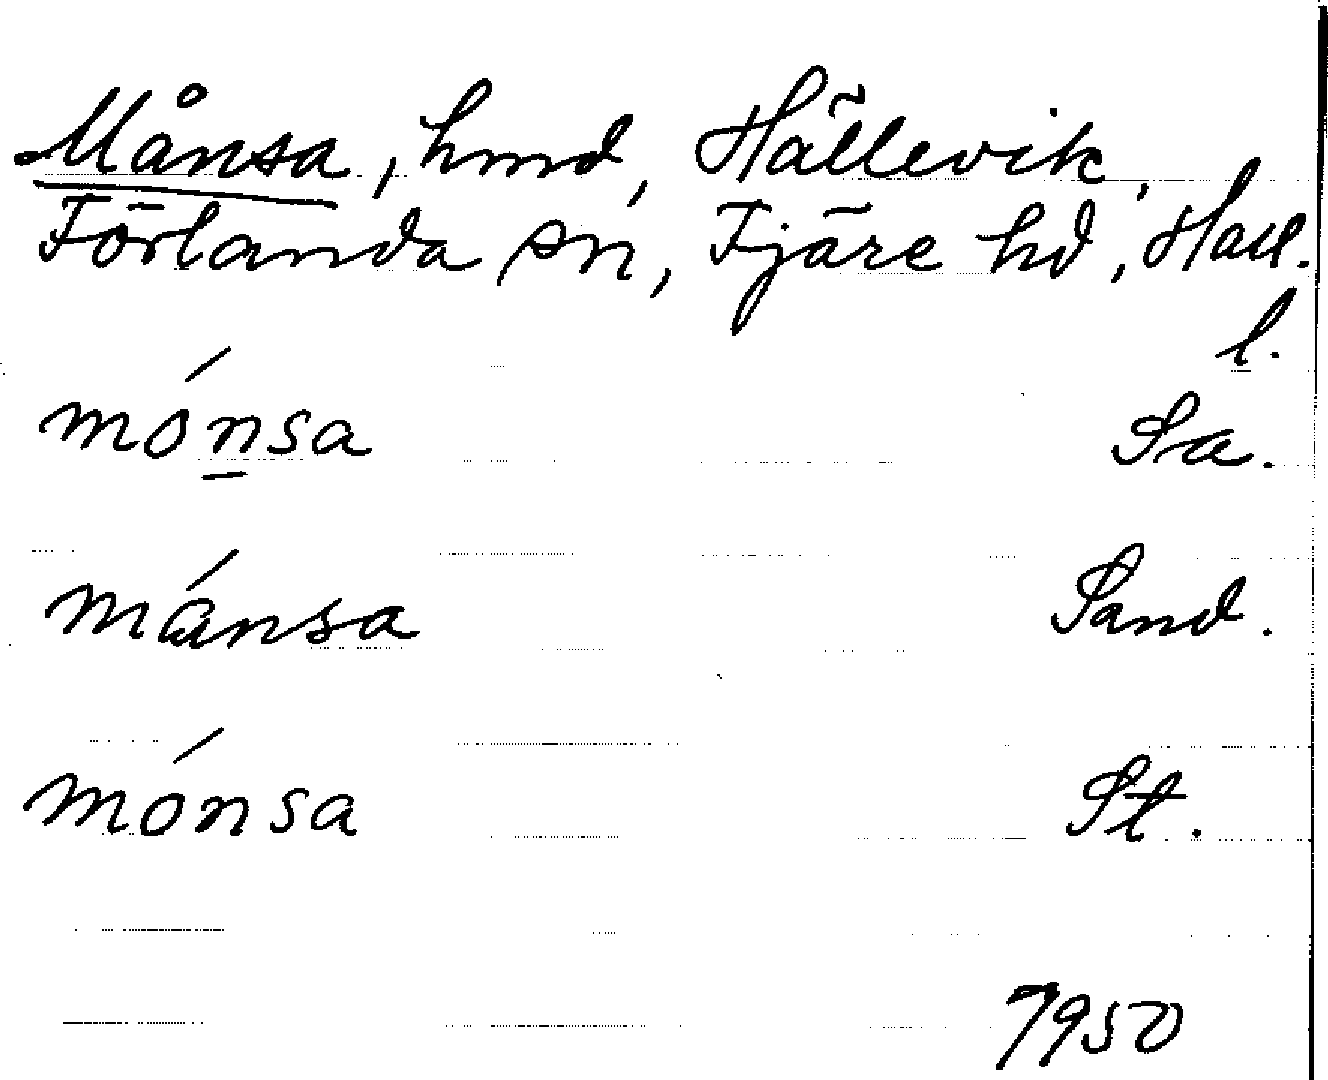 Månsa, hmd, Hällevik,
Förlanda sn, Fjäre hd, Hall.
l.
mónsa Sa.
mánsa Sand.
mónsa St.
7950